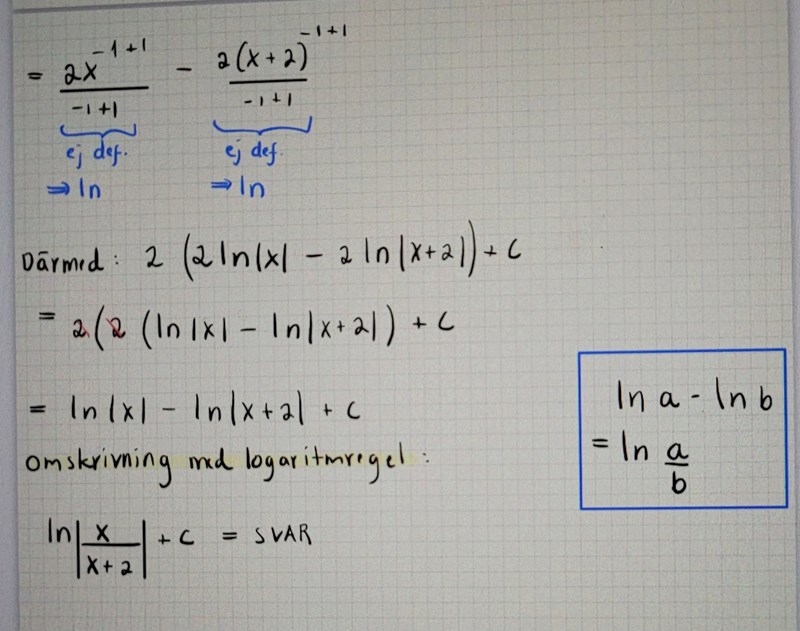 = 2x^(-1+1) / (-1+1) - 2(x+2)^(-1+1) / (-1+1)
ej def. ej def.
⇒ ln ⇒ ln
Därmed: 2 (2 ln|x| - 2 ln|x+2|) + C
= 2(2 (ln|x| - ln|x+2|) + C
= ln|x| - ln|x+2| + C
omskrivning med logaritmregel:
ln|x/(x+2)| + C = SVAR
ln a - ln b
= ln a/b